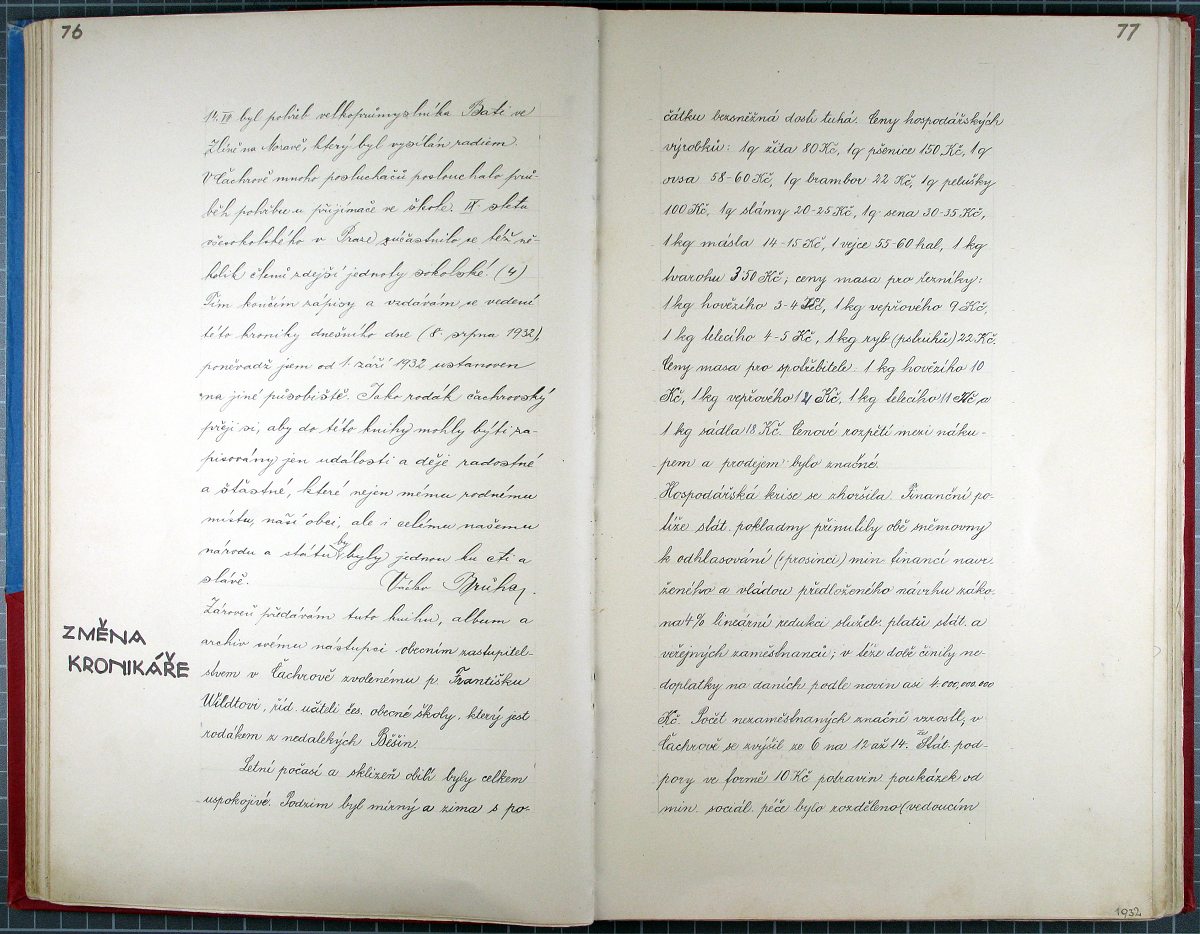 76
14. VII byl pohřeb velkoprůmyslníka Bati ve
Zlíně na Moravě, který byl vysílán radiem.
V Čachrově mnoho posluchačů poslouchalo prů-
běh pohřbu u přijímače ve škole. IX sletu
všesokolského v Praze zúčastnilo se též ně-
kolik členů zdejší jednoty sokolské. (4)
Tím končím zápisy a vzdávám se vedení
této kroniky dnešního dne (8. srpna 1932),
poněvadž jsem od 1. září 1932 ustanoven
na jiné působiště. Jako rodák čachrovský
přeji si, aby do této knihy mohly býti za-
pisovány jen události a děje radostné
a šťastné, které nejen mému rodnému
místu, naší obci, ale i celému našemu
národu a státu by byly jednou ku cti a
slávě. Václav Brůha.
Zároveň předávám tuto knihu, album a
archiv svému nástupci obecním zastupitel-
stvem v Čachrově zvolenému p. Františku
Wildtovi, říd. učiteli čes. obecné školy, který jest
rodákem z nedalekých Běšin.
Letní počasí a sklizeň obilí byly celkem
uspokojivé. Podzim byl mírný a zima s po-
ZMĚNA
KRONIKÁŘE
77
čátku bezsněžná dosti tuhá. Ceny hospodářských
výrobků: 1q žita 80 Kč, 1q pšenice 150 Kč, 1q
ovsa 58-60 Kč, 1q brambor 22 Kč, 1q pelušky
100 Kč, 1q slámy 20-25 Kč, 1q sena 30-35 Kč,
1 kg másla 14-15 Kč, 1 vejce 55-60 hal, 1 kg
tvarohu 3 50 Kč; ceny masa pro řezníky:
1 kg hovězího 3-4 Kč, 1 kg vepřového 9 Kč,
1 kg telecího 4-5 Kč, 1 kg ryb (pstruhů) 22 Kč.
Ceny masa pro spotřebitele: 1 kg hovězího 10
Kč, 1 kg vepřového 12 Kč, 1 kg telecího 11 Kč a
1 kg sádla 18 Kč. Cenové rozpětí mezi náku-
pem a prodejem bylo značné.
Hospodářská krise se zhoršila. Finanční po-
tíže stát. pokladny přinutily obě sněmovny
k odhlasování (v prosinci) min. financí navr-
ženého a vládou předloženého návrhu záko-
na 4% lineární redukci služeb. platů stát. a
veřejných zaměstnanců; v téže době činily ne-
doplatky na daních podle novin asi 4.000,000.000
Kč. Počet nezaměstnaných značně vzrostl, v
Čachrově se zvýšil ze 6 na 12 až 14. Ze Stát. pod-
pory ve formě 10 Kč potravin poukázek od
min. sociál. péče bylo rozděleno (vedoucím
1932